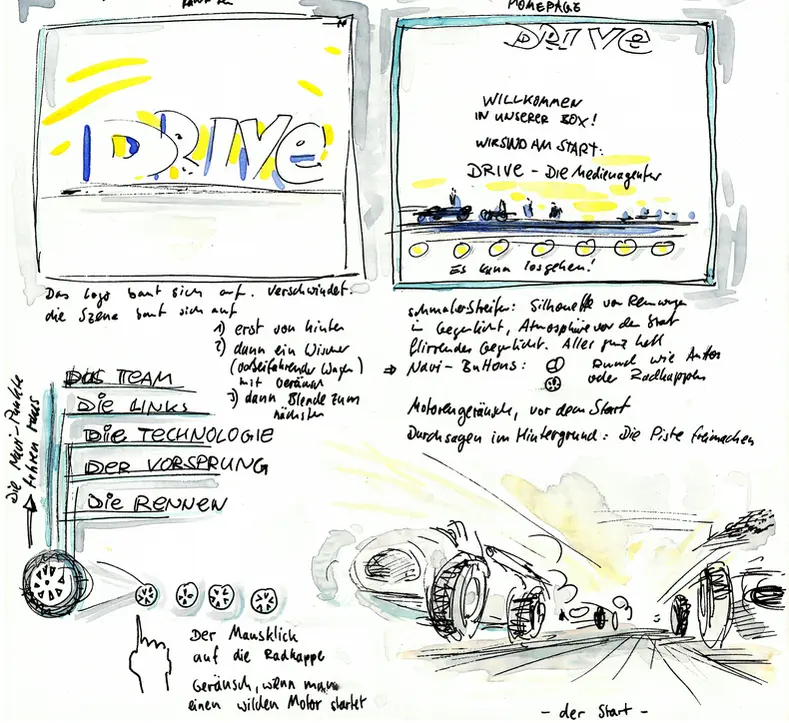 HOMEPAGE
DRIVE
DRIVE
WILLKOMMEN
IN UNSERER BOX!
WIR SIND AM START.
DRIVE - Die Medienagentur
Es kann losgehen!
Das Logo baut sich auf. Verschwindet.
die Szene baut sich auf
1) erst von hinten
2) dann ein Wischer
(vorbeifahrender Wagen)
mit Geräusch
3) dann Blende zum
nächsten
schmaler Streifen: Silhouette von Rennwagen
in Gegenlicht, Atmosphäre vor dem Start
flirrendes Gegenlicht. Alles ganz hell
Navi-Buttons:
Rund wie Autos
oder Radkappen
Motorengeräusch, vor dem Start
Durchsagen im Hintergrund: Die Piste freimachen
Die Navi-Punkte
fahren raus
DAS TEAM
Die LINKS
Die TECHNOLOGIE
DER VORSPRUNG
Die RENNEN
Der Mausklick
auf die Radkappe
Geräusch, wenn man
einen wilden Motor startet
- der Start -